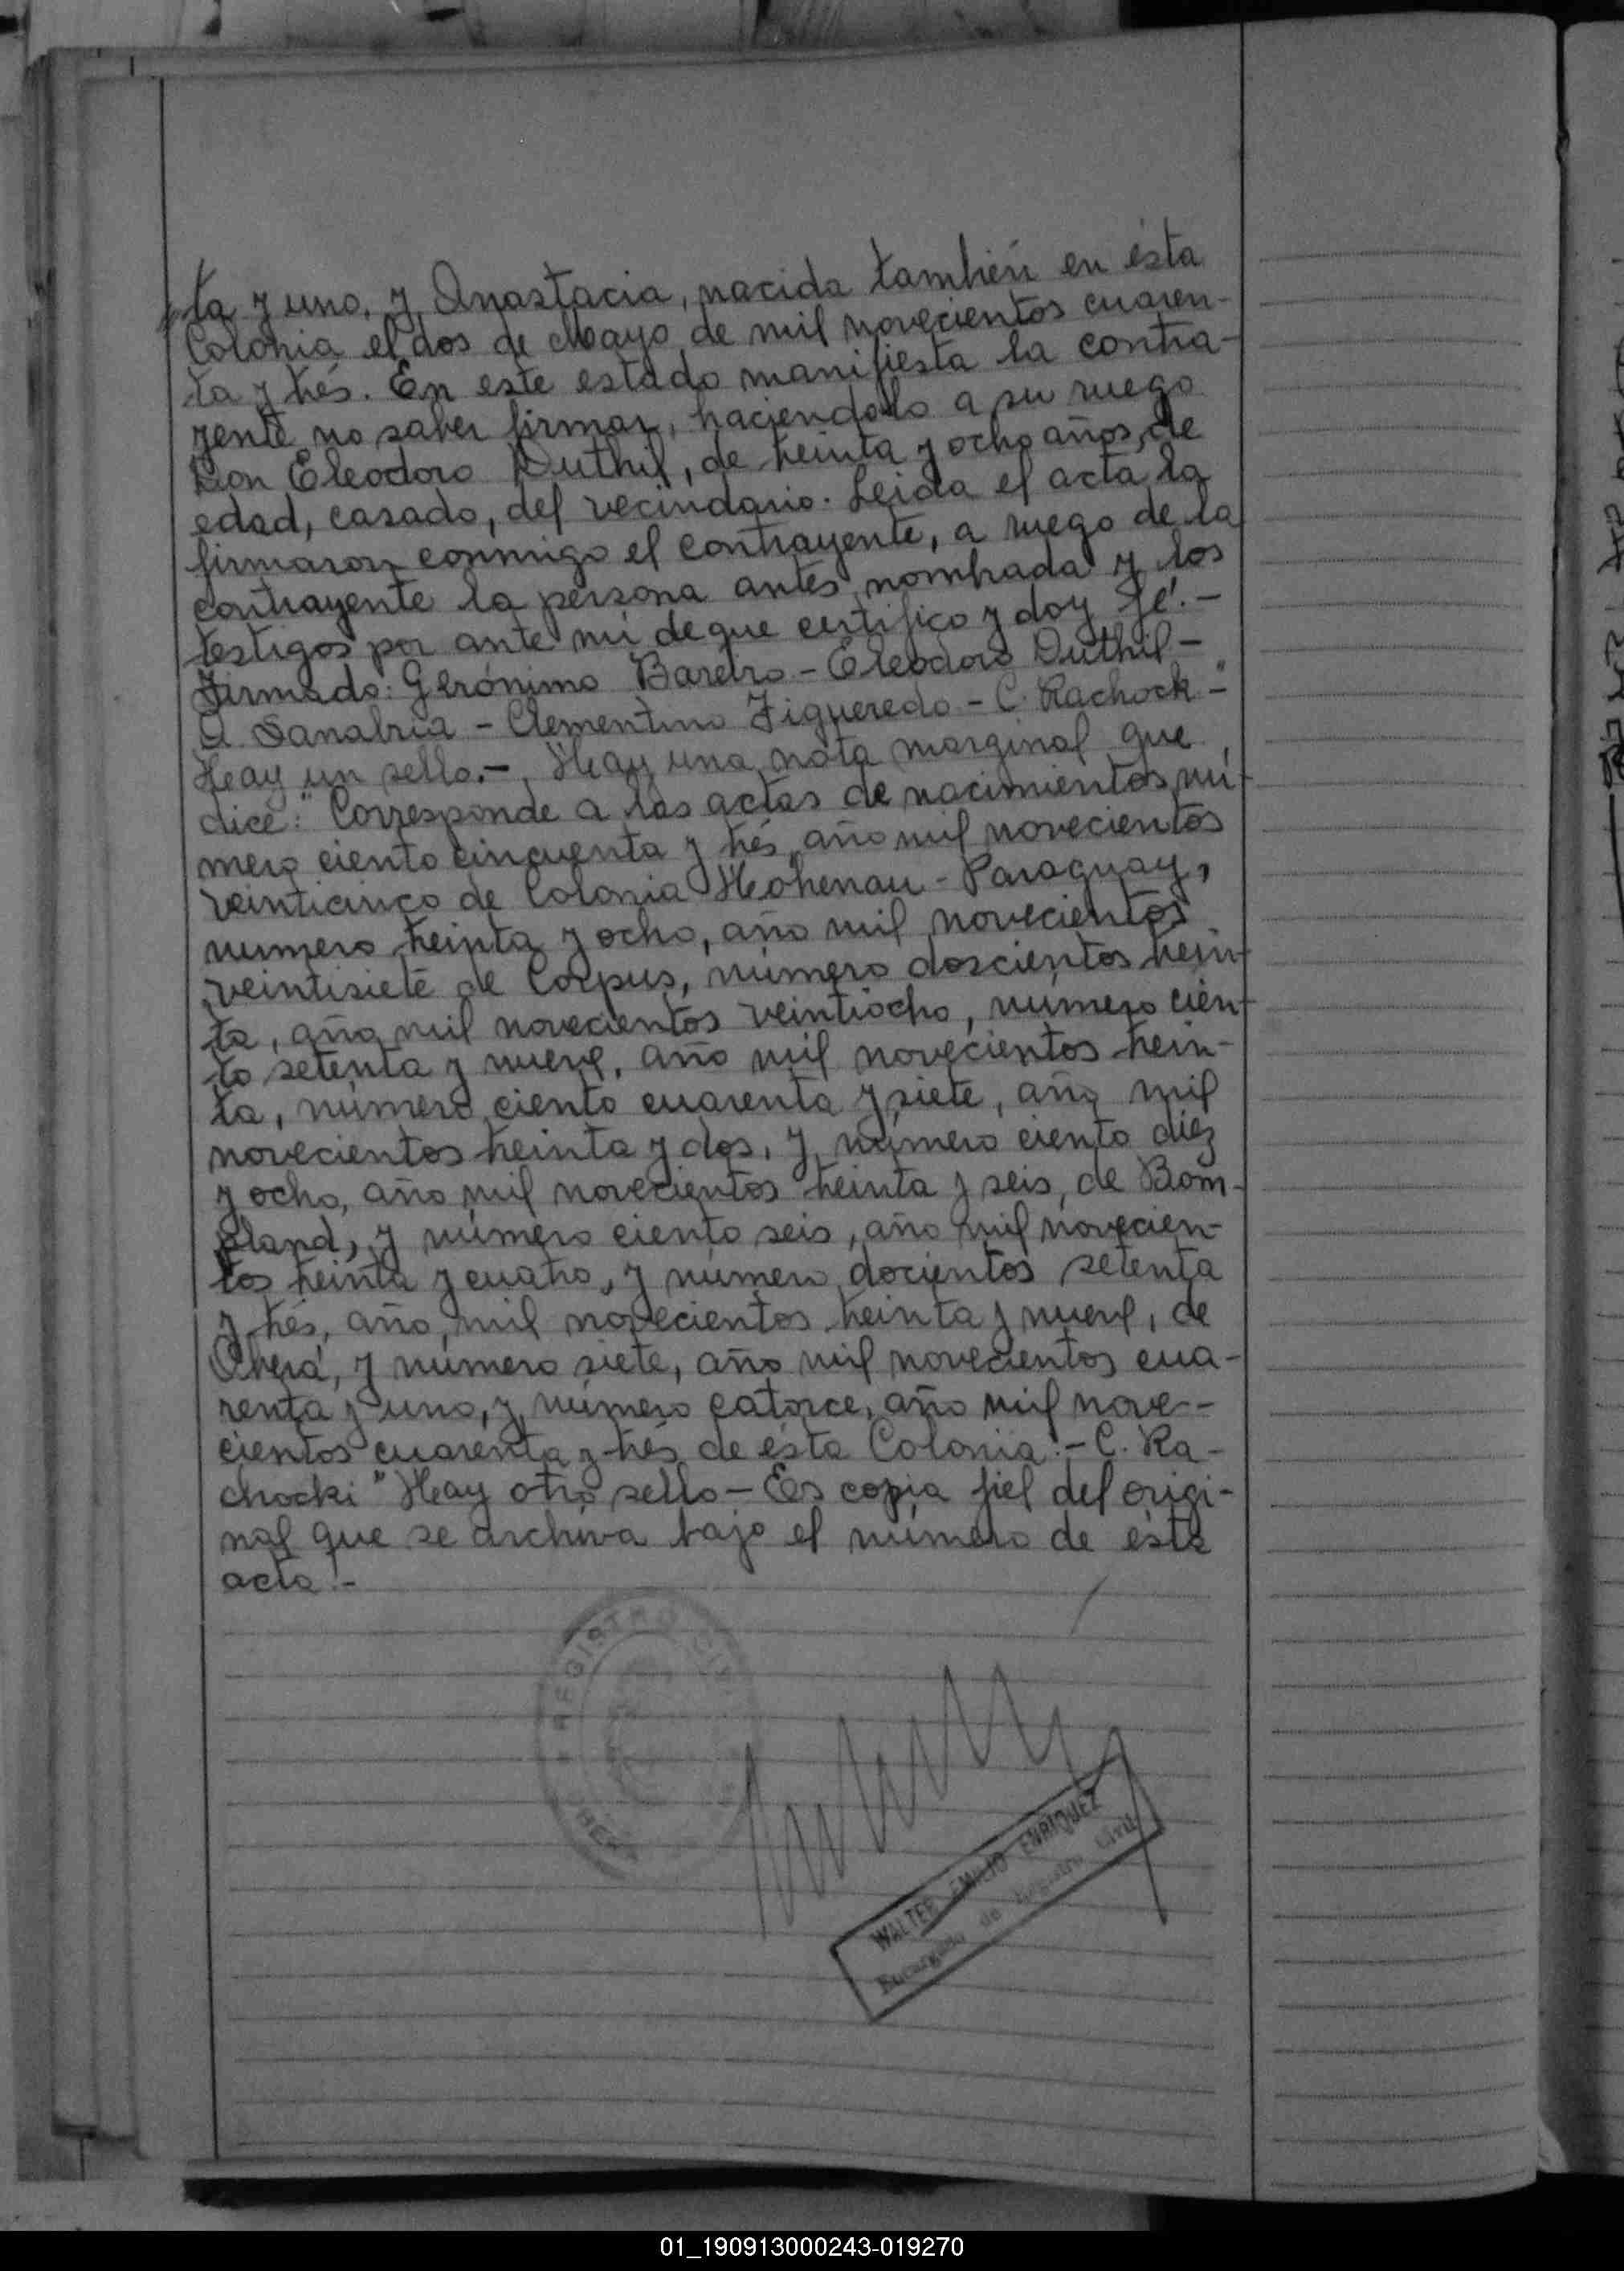 ta y uno, y, Anastacia, nacida también en ésta
Colonia el dos de Mayo de mil novecientos cuaren-
ta y trés. En este estado manifiesta la contra-
yente no saber firmar, haciendolo a su ruego
Don Eleodoro Duthil, de treinta y ocho años, de
edad, casado, del vecindario. Leida el acta la
firmaron conmigo el contrayente, a ruego de la
contrayente la persona antes nombrada y los
testigos por ante mí de que certifico y doy fé.-
Firmado: Gerónimo Bareiro - Eleodoro Duthil -
A. Sanabria - Clementino Figueredo - C. Rachock -"
Hay un sello.- Hay una nota marginal que
dice: "Corresponde a las actas de nacimientos nú-
mero ciento cincuenta y trés, año mil novecientos
veinticinco de Colonia Hohenau - Paraguay,
numero treinta y ocho, año mil novecientos
veintisiete de Corpus, número doscientos trein-
ta, año mil novecientos veintiocho, número cien-
to setenta y nueve, año mil novecientos trein-
ta, número ciento cuarenta y siete, año mil
novecientos treinta y dos, y número ciento diez
y ocho, año mil novecientos treinta y seis, de Bom-
pland, y número ciento seis, año mil novecien-
tos treinta y cuatro, y número docientos setenta
y trés, año mil novecientos treinta y nueve, de
Oberá, y número siete, año mil novecientos cua-
renta y uno, y número catorce, año mil nove-
cientos cuarenta y trés de ésta Colonia.- C. Ra-
chocki" Hay otro sello - Es copia fiel del origi-
nal que se archiva bajo el número de ésta
acta.-
REGISTRO CIVIL
WALTER EMILIO ENRIQUEZ
Encargado de Registro Civil
01_190913000243-019270